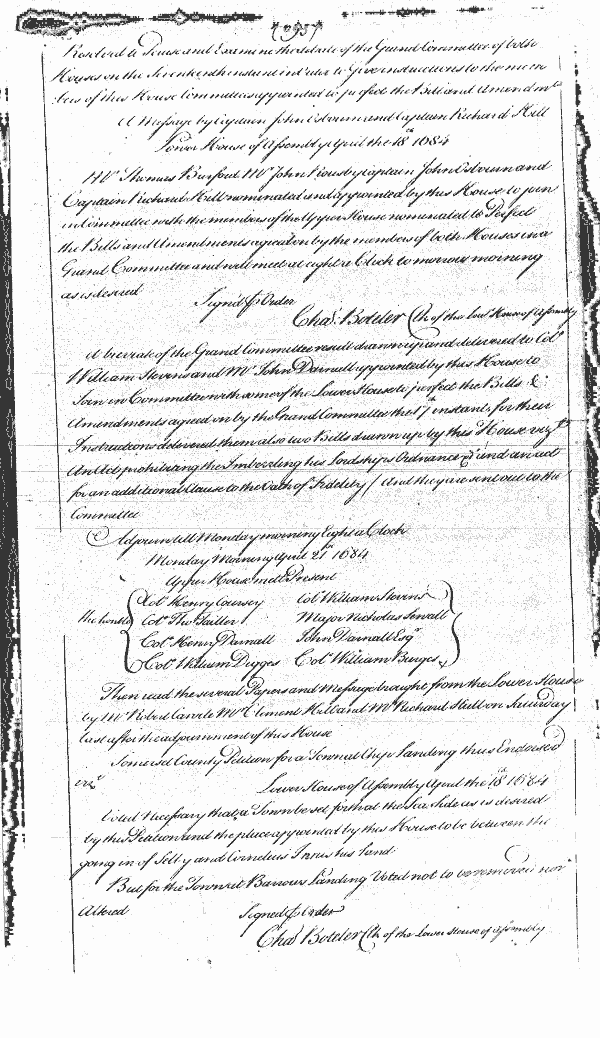 (395)
Resolved to Peruse and Examine the debate of the Grand Committee of both
Houses on the Seventeenth instant in order to Give instructions to the mem
bers of this House Committee appointed to perfect the Bills and Amendmts
A Message by Captain John Osbourn and Captain Richard Hill
Lower House of Assembly April the 18th 1684
Mr Thomas Burford Mr John Rousby Captain John Osbourn and
Captain Richard Hill nominated and appointed by this House to join
in Committee with the members of the Upper House nominated to Perfect
the Bills and Amendments agreed on by the members of both Houses in a
Grand Committee and will meet at eight a Clock to morrow morning
as is desired
Signed P Order
Chas. Boteler Clk of the low House of Assembly
A breviate of the Grand Committee result drawn up and delivered to Colo
William Stevens and Mr John Darnall appointed by this House to
Join in Committee with some of the Lower House to perfect the Bills &
Amendments agreed on by the Grand Committee the 17th instant, for their
Instructions delivered them also two Bills drawn up by this House vizt
An Act prohibiting the Imbezling his Lordships Ordnance &c and an act
for an additional Clause to the Oath of Fidelity / And they are sent out to the
Committee
Adjourn till Monday morning Eight a Clock
Monday Morning April 21st 1684
Upper House mett Present
the honble
Colo Henry Coursey Colo William Stevens
Colo Tho: Tailler Major Nicholas Sewall
Colo Henry Darnall John Darnall Esqr
Colo William Digges Colo William Burges
Then read the several Papers and Message brought from the Lower House
by Mr Robert Carvile Mr Clement Hill and Mr Richard Hull on Saturday
last after the adjournment of this House
Somerset County Petition for a Town and Ship Landing thus Endorsed
vizt
Lower House of Assembly April the 18th 1684
Voted Necessary that a Town be set forth at the Sea Side as is desired
by this Petition and the place appointed by this House to be between the
going in of Selby and Cornelius Innis his Land
But for the Town at Barrows Landing Voted not to be removed nor
Altered
Signed P Order
Chas Boteler Clk of the lower House of Assembly